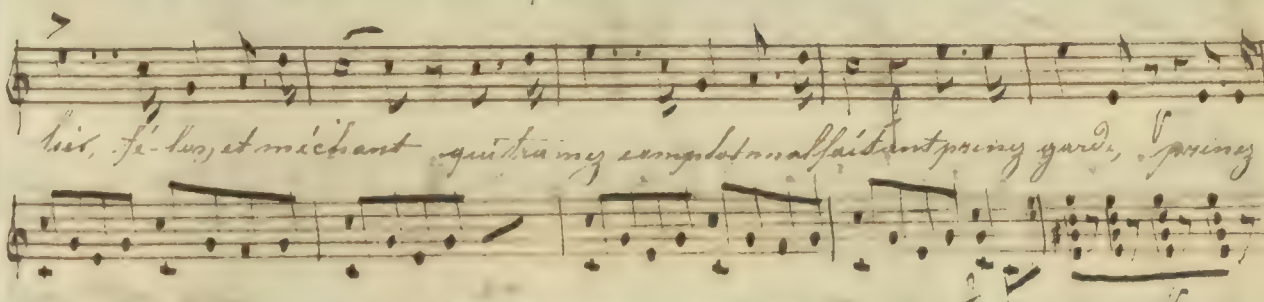 liez, fé-lon, et méchant qui tramez complot malfaisant prenez garde, prenez